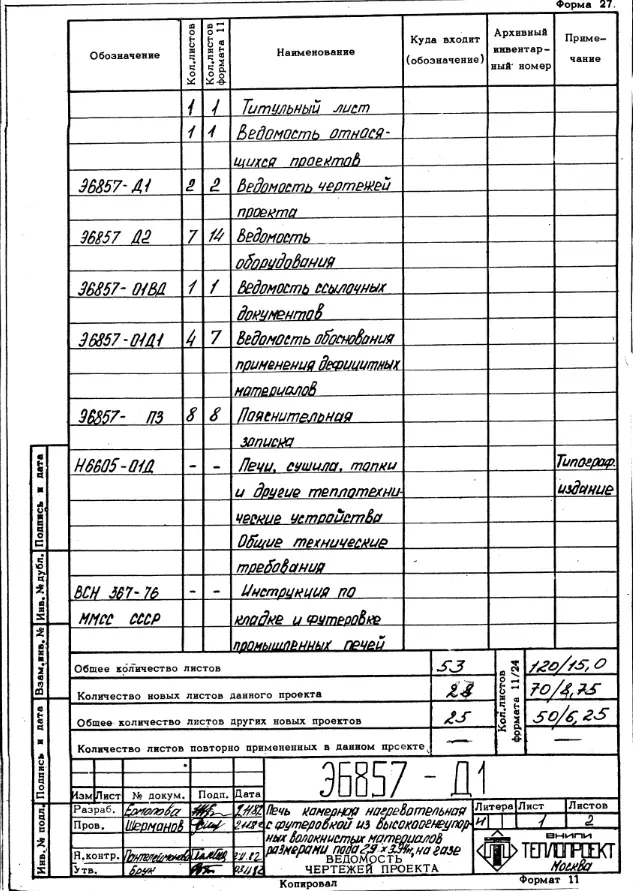 Форма 27.
Обозначение Кол.листов Кол.листов формата 11 Наименование Куда входит (обозначение) Архивный инвентар- ный номер Приме- чание
1 1 Титульный лист
1 1 Ведомость относя-
щихся проектов
Э6857-Д1 2 2 Ведомость чертежей
проекта
Э6857 Д2 7 14 Ведомость
оборудования
Э6857-01ВД 1 1 Ведомость ссылочных
документов
Э6857-01Д1 4 7 Ведомость обоснования
применения дефицитных
материалов
Э6857- ПЗ 8 8 Пояснительная
записка
Н6605-01Д - - Печи, сушила, топки Типограф.
и другие теплотехни- издание
ческие устройства
Общие технические
требования
ВСН 367-76 - - Инструкция по
ММСС СССР кладке и футеровке
промышленных печей
Общее количество листов 53 120/15,0
Количество новых листов данного проекта 28 70/8,75
Общее количество листов других новых проектов 25 50/6,25
Количество листов повторно примененных в данном проекте — —
Кол.листов формата 11/24
Инв.№ подл. Подпись и дата Взам.инв.№ Инв.№ дубл. Подпись и дата
Э6857-Д1
Изм Лист № докум. Подп. Дата
Разраб. Ермолова
Пров. Шерманов
Н.контр.
Утв.
Печь камерная нагревательная
с футеровкой из высокоогнеупор-
ных волокнистых материалов
размерами пода 2,9 х на газе
ВЕДОМОСТЬ
ЧЕРТЕЖЕЙ ПРОЕКТА
Литера Лист Листов
И 1 2
ВНИПИ
ТЕПЛОПРОЕКТ
Москва
Копировал Формат 11